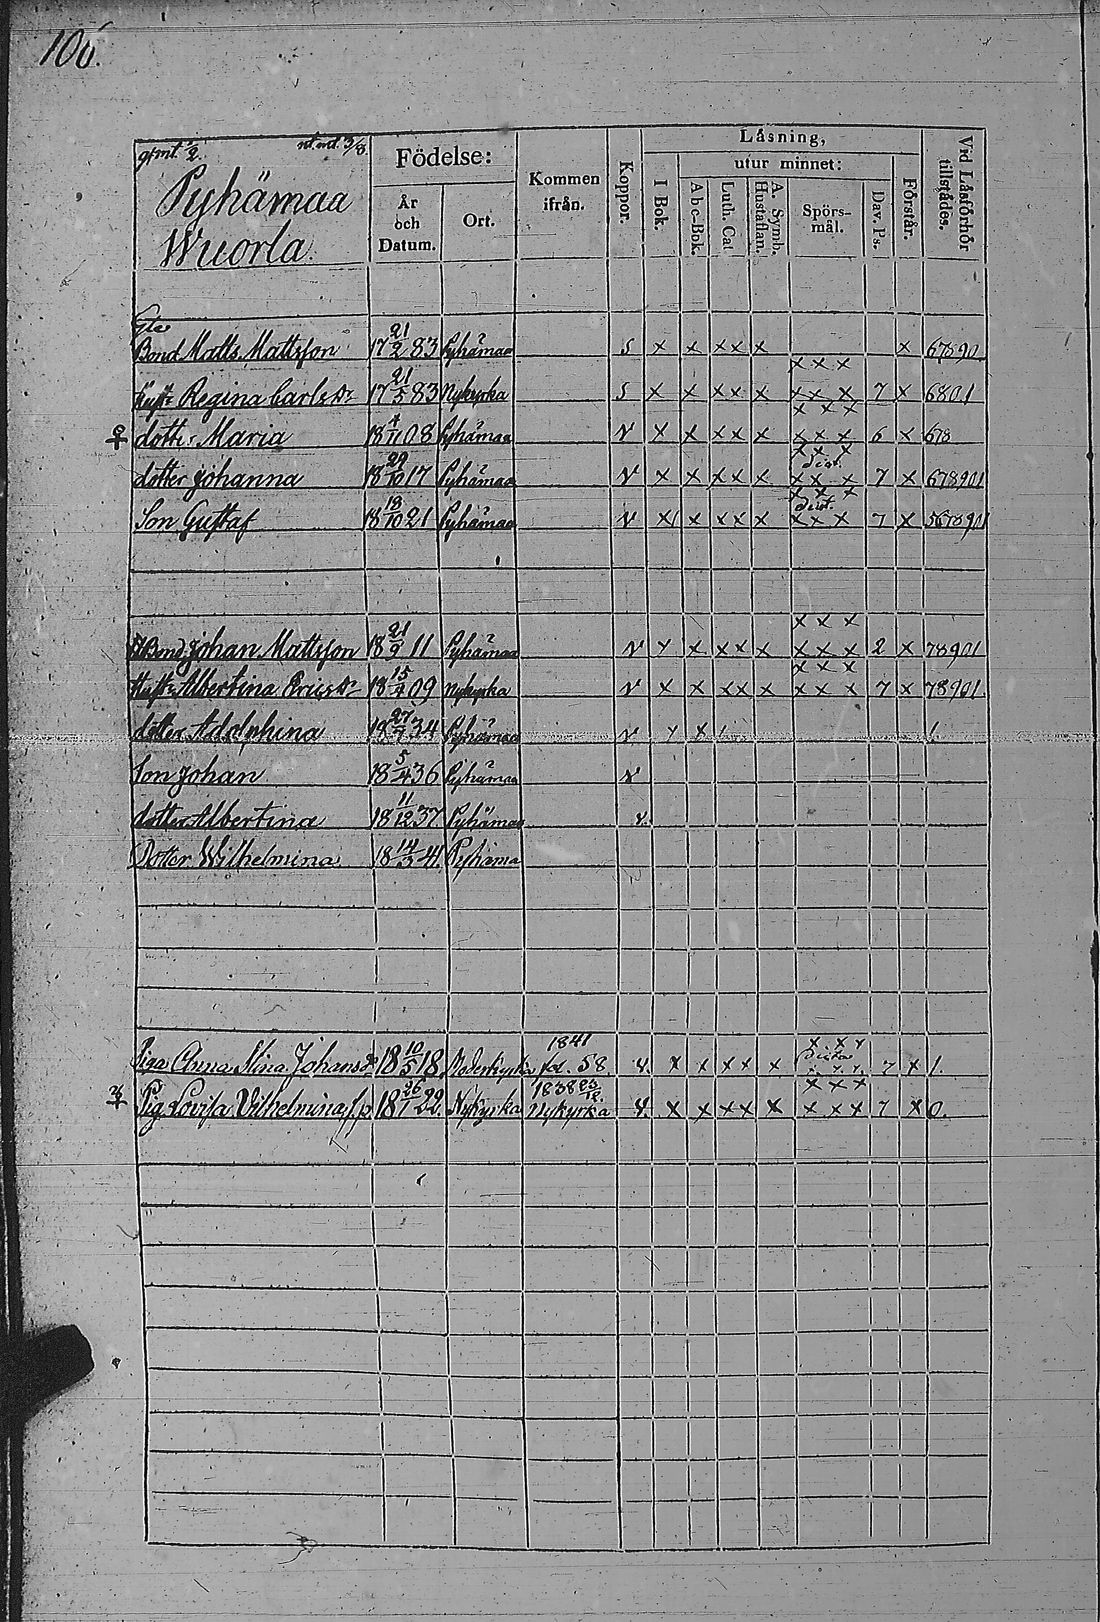 106.
gfmt. 1/2. nt. mt. 3/8
Pyhämaa
Wuorla.
Födelse:
År och Datum.
Ort.
Kommen ifrån.
Koppor.
Låsning,
I Bok.
utur minnet:
A b c-Bok.
Luth. Cat
A. Symb. Hustaflan.
Spörsmål.
Dav. Ps.
Förstår.
Vid Låsförhör tillstådes.
Gle
Bond Matts Mattsson 17 21/2 83 Pyhämaa S x x x x x x 67890
x x x
Hust. Regina Carlsdr 17 21/5 83 Nykyrka S x x x x x x x x 7 x 6801
x x x
♀ dotter Maria 18 4/11 08 Pyhämaa V x x x x x x x x 6 x 678
x x x
dist.
dotter Johanna 18 29/10 17 Pyhämaa V x x x x x x x x 7 x 678901
x x x
dist.
Son Gustaf 18 18/10 21 Pyhämaa V x x x x x x x x 7 x 5678901
x x x
Bond Johan Mattsson 18 21/9 11 Pyhämaa V x x x x x x x x 2 x 78901
x x x
Hust. Albertina Ericsdr 18 15/4 09 Nykyrka V x x x x x x x x 7 x 78901.
dotter Adolphina 18 27/7 34 Pyhämaa V x x 1.
Son Johan 18 5/4 36 Pyhämaa V
dotter Albertina 18 11/12 37 Pyhämaa V.
Dotter Wilhelmina 18 14/3 41. Pyhäma
1841 x x x
Piga Anna Stina Johansdr 18 10/5 18 fol. 58. V. x x x x x x x x 7 x 1.
1838 23/12. x x x
Pig Lovisa Vilhelmina 18 26/1 22. Nykyrka Nykyrka V. x x x x x x x x 7 x 0.